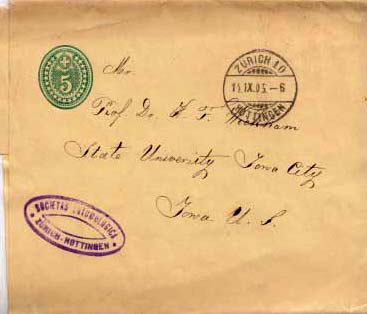 5
ZÜRICH 10
11.IX.05.-6
HOTTINGEN
Mr.
Prof. Dr. H. F. Wickham
State University Iowa City
Iowa U. S.
SOCIETAS ENTOMOLOGICA
ZÜRICH-HOTTINGEN